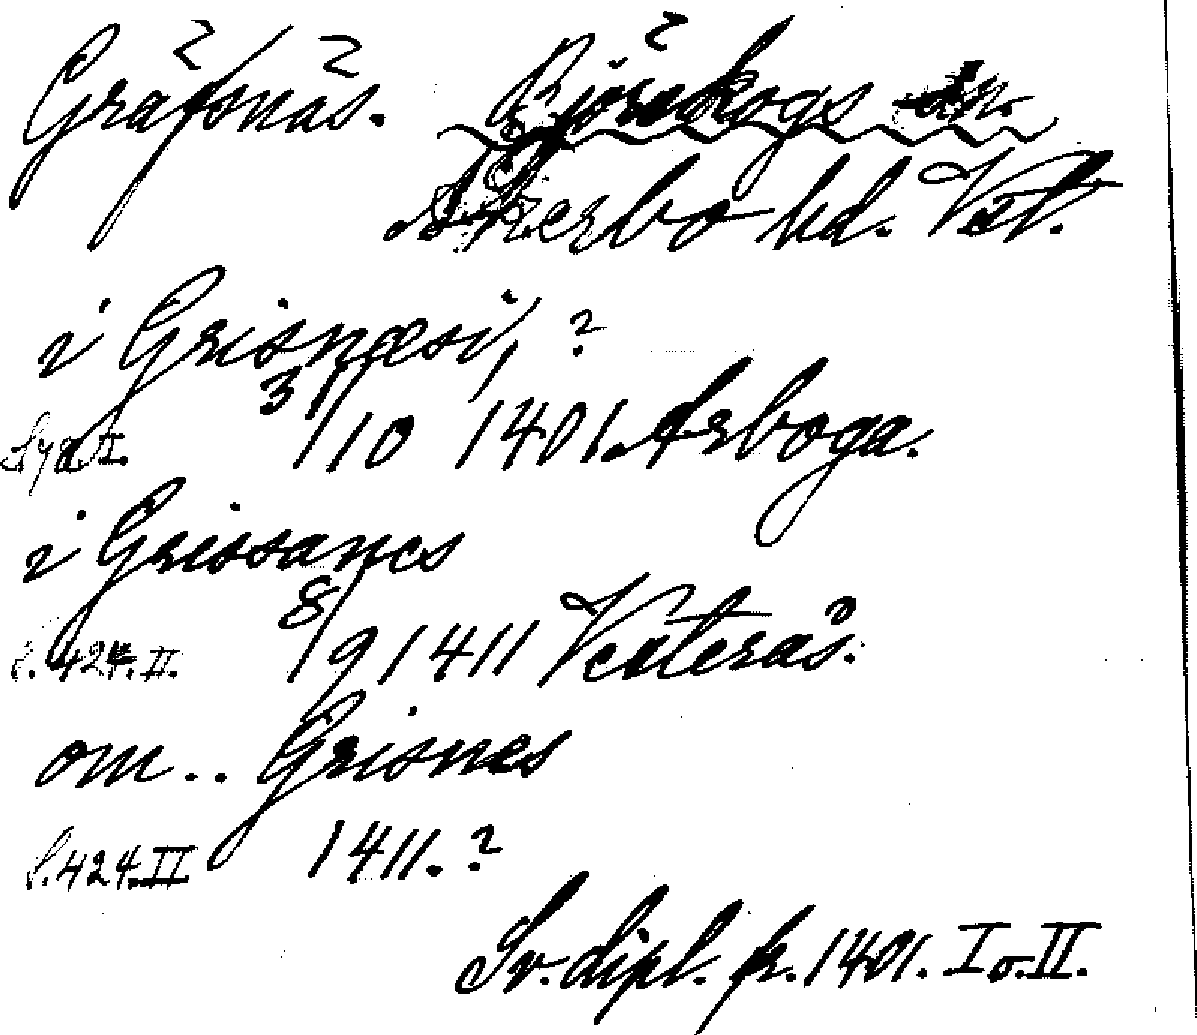 Gräfsnäs. Björskogs sn.
Åkerbo hd. Vstl.
i Grisnæsi, ?
31/10 1401. Arboga.
i Grissanes
S. 424. II. 8/9 1411 Vesterås.
om .. Grisnes
S. 424. II 1411. ?
Sv. dipl. fr. 1401. I o. II.